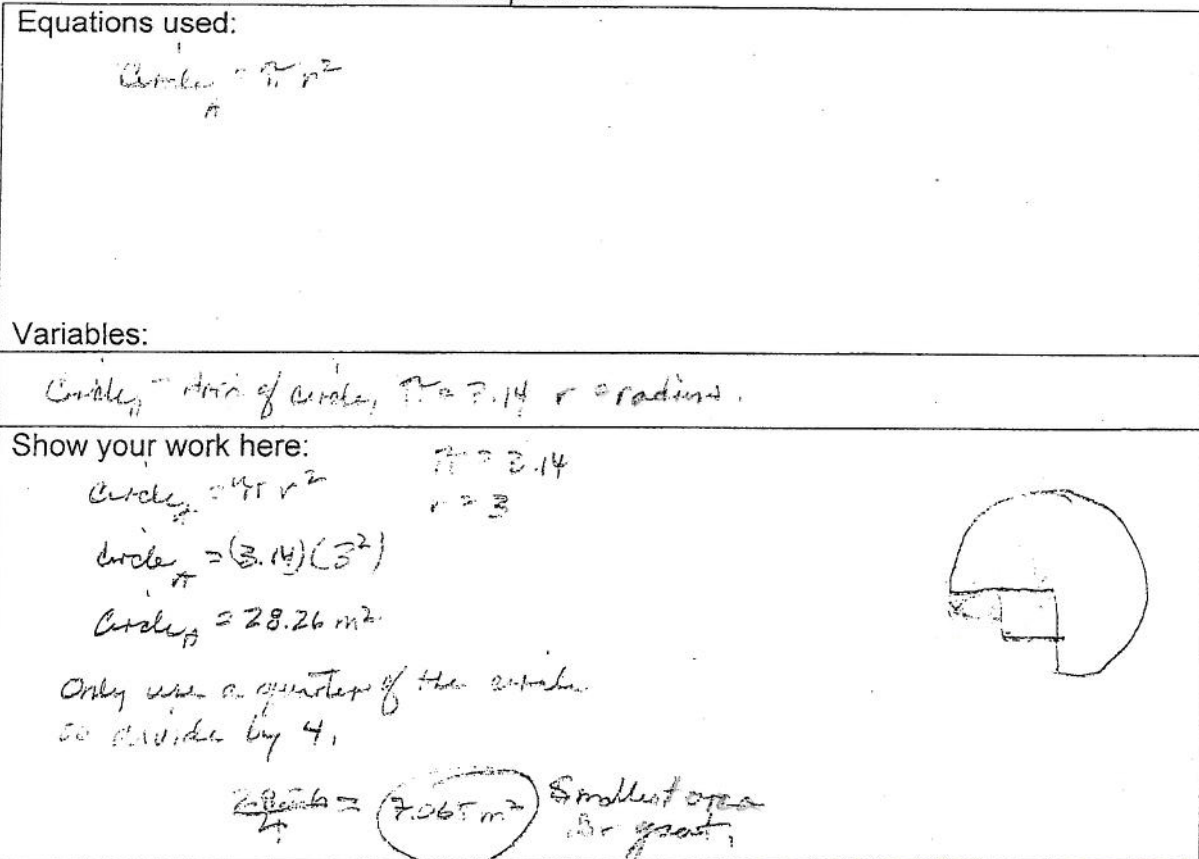 Equations used:
Circle A = π r²
Variables:
Circle A = Area of circle, π = 3.14 r = radius.
Show your work here:
π = 3.14
r = 3
Circle A = π r²
Circle A = (3.14)(3²)
Circle A = 28.26 m²
Only use a quarter of the circle
so divide by 4.
28.26/4 = 7.065 m² Smallest area
for goat.